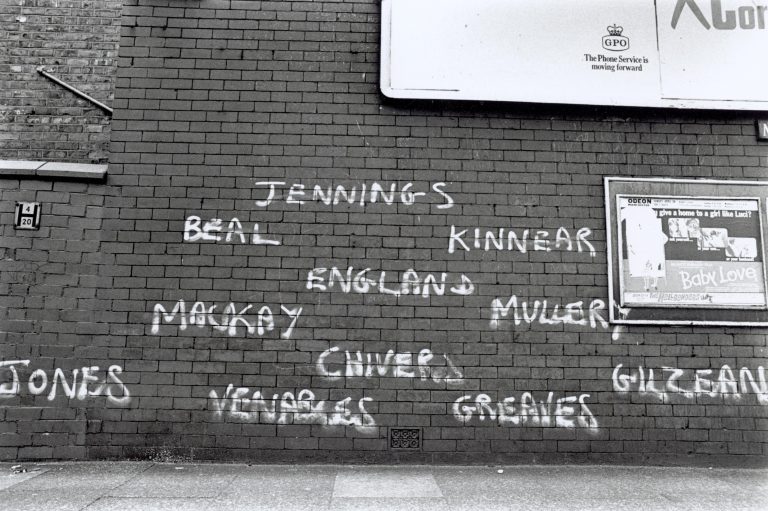 GPO
The Phone Service is
moving forward
4
20
JENNINGS
BEAL KINNEAR
ENGLAND
MACKAY MULLERY
CHIVERS
JONES VENABLES GREAVES GILZEAN
ODEON
give a home to a girl like Luci?
Baby Love